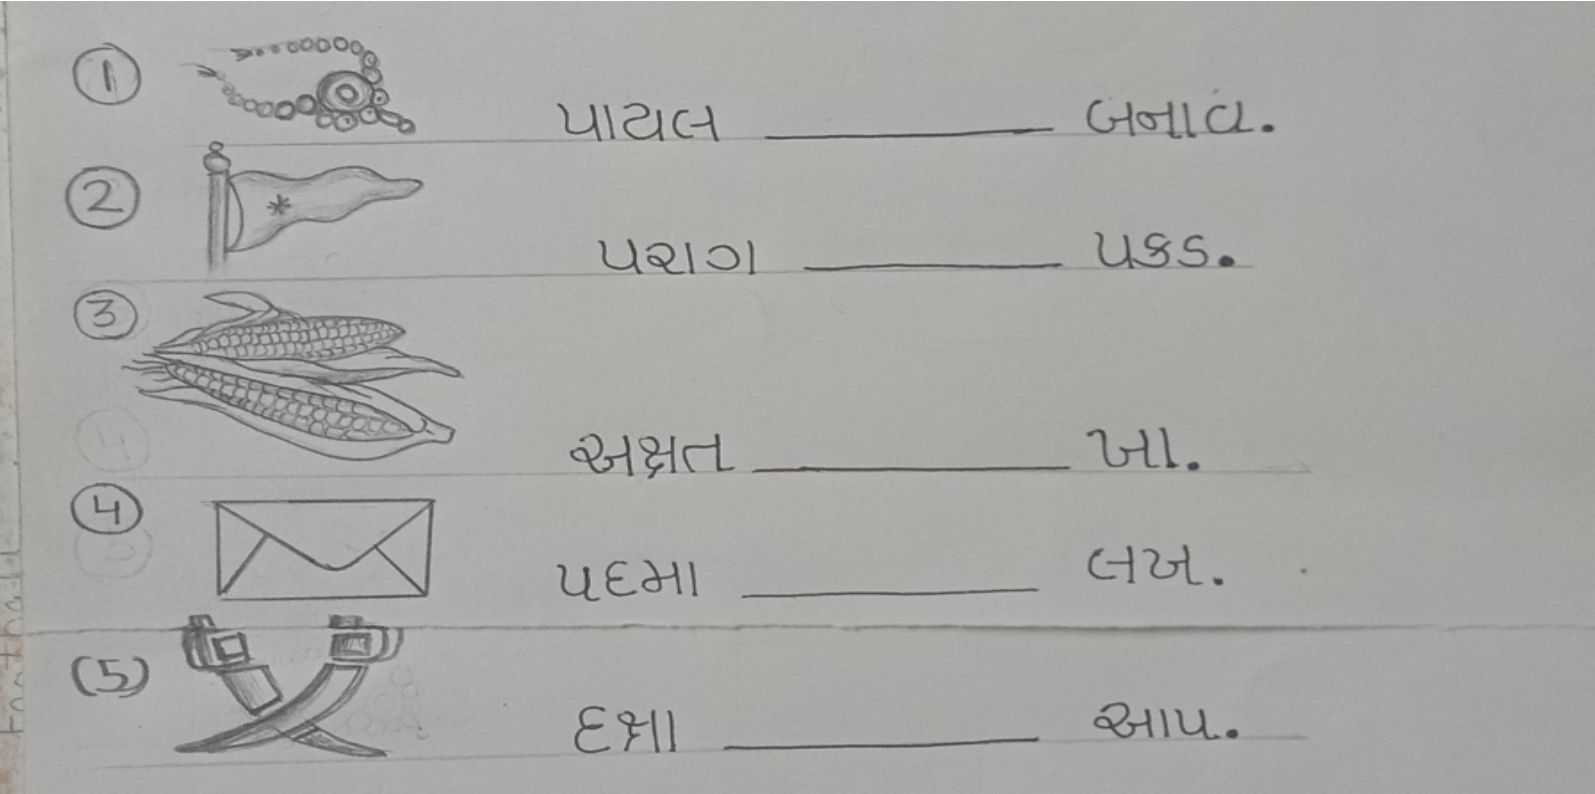 ① પાયલ ________ બનાવ.
② પરાગ ________ પકડ.
③ અક્ષત ________ ખા.
④ પદમા ________ લખ.
(5) દક્ષા ________ આપ.